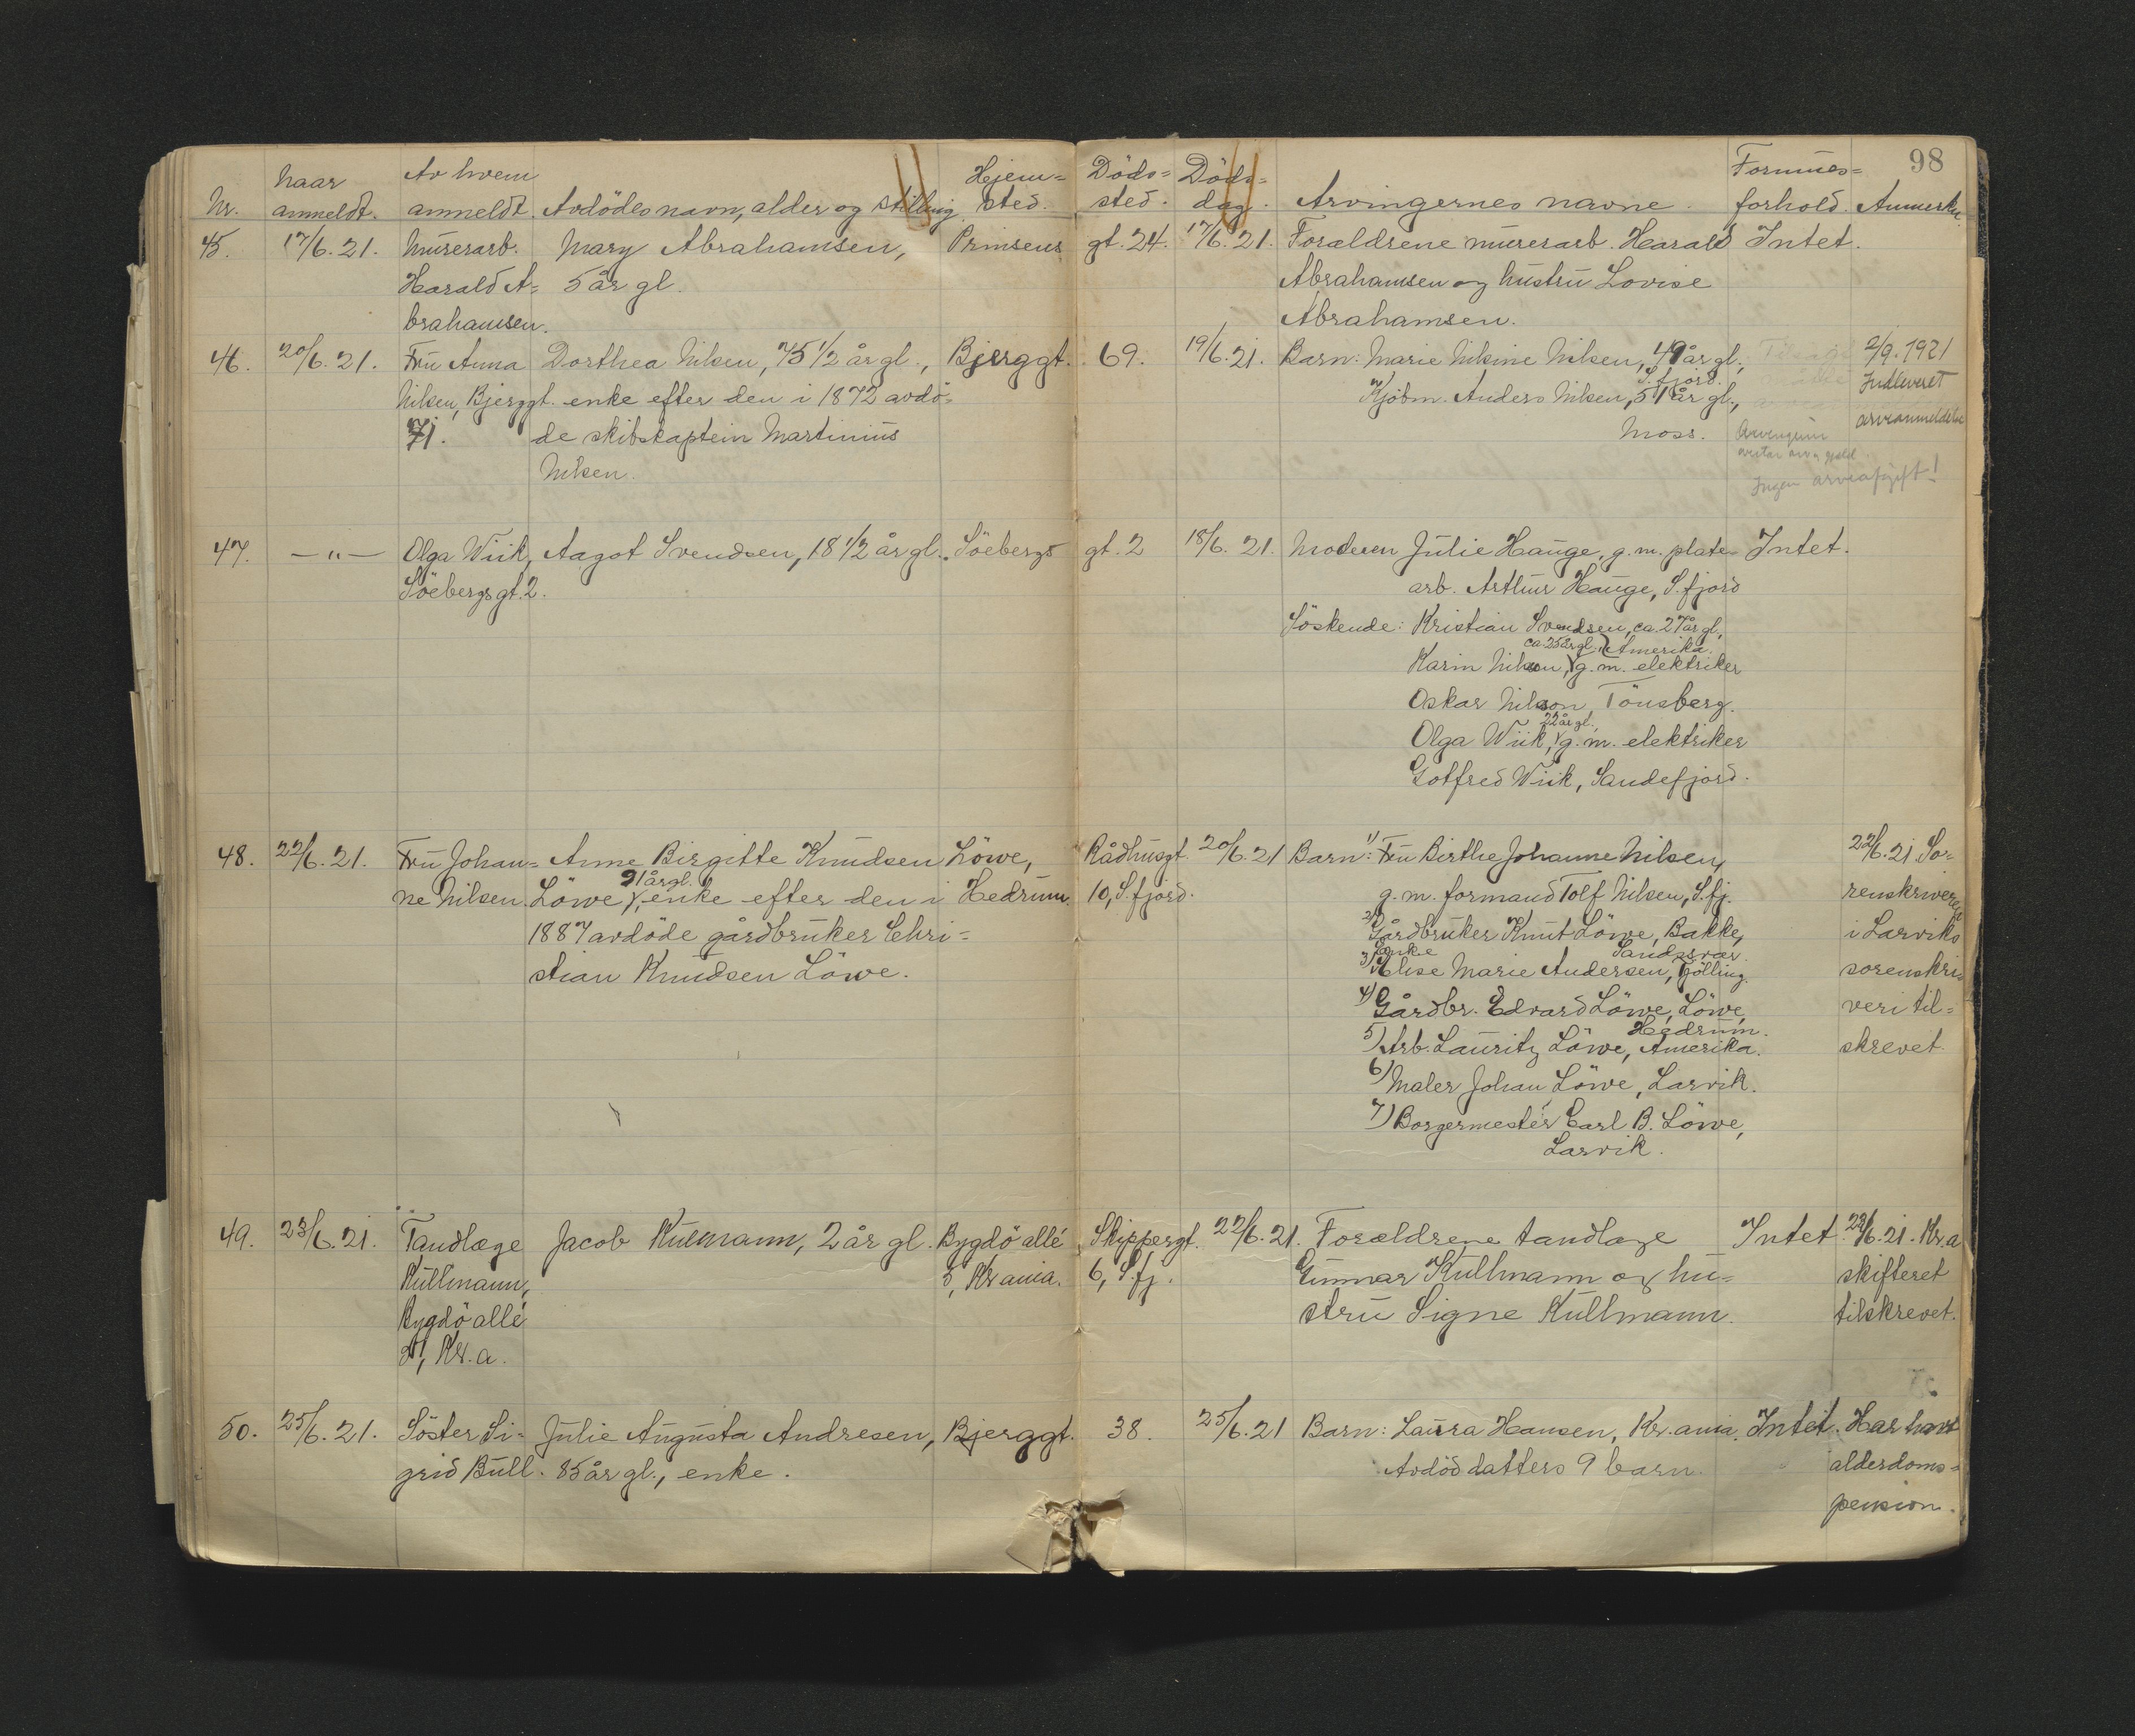 98
Nr. | Naar anmeldt. | Av hvem anmeldt | Avdödes navn, alder og stilling. | Hjem=sted. | Döds=sted. | Döds=dag. | Arvingernes navne. | Formues=forhold. | Anmerkn.
45. 17/6.21. Murerarb. Mary Abrahamsen, Prinsens gt. 24. 17/6.21. Forældrene murerarb. Harald Intet.
Harald A= 5 år gl. Abrahamsen og hustru Lovise
brahamsen. Abrahamsen.
46. 20/6.21. Fru Anna Dorthea Nilsen, 75 1/2 år gl., Bjerggt. 69. 19/6.21. Barn: Marie Nilsine Nilsen, 49 år gl., 2/9.1921
S.fjord. Indleveret
Nilsen, Bjerggt. enke efter den i 1872 avdö= Kjöbm. Anders Nilsen, 51 år gl., arveanmeldelse
71. de skibskaptein Martinius Moss. Arvingerne
Nilsen. overtar arv og gjeld
Ingen arveafgift!
47. —"— Olga Wiik, Aagot Svendsen, 18 1/2 år gl. Söebergs gt. 2 18/6.21. Moderen Julie Hauge, g.m. plate Intet.
Söebergsgt. 2. arb. Arthur Hauge, S.fjord
Söskende: Kristian Svendsen, ca. 27 år gl.,
ca. 25 år gl. Amerika.
Karin Nilson, g.m. elektriker
Oskar Nilson, Tönsberg.
22 år gl.
Olga Wiik, g.m. elektriker
Gotfred Wiik, Sandefjord.
48. 22/6.21. Fru Johan= Anne Birgitte Knudsen Löwe, Rådhusgt. 20/6.21 Barn: 1) Fru Birthe Johanne Nilsen, 22/6.21 So=
91 år gl.
ne Nilsen. Löwe, enke efter den i Hedrum. 10, S.fjord. g.m. formand Tolf Nilsen, S.fj. renskriveren
1887 avdöde gårdbruker Chri= 2) Gårdbruker Knut Löwe, Bakke, i Larviks
Enke Sandsvær.
stian Knudsen Löwe. 3) Else Marie Andersen, Tjölling. sorenskri
4) Gårdbr. Edvard Löwe, Löwe, veri til=
Hedrum.
5) Arb. Lauritz Löwe, Amerika. skrevet.
6) Maler Johan Löwe, Larvik.
7) Borgermester Carl B. Löwe,
Larvik.
49. 23/6.21. Tandlæge Jacob Kullmann, 2 år gl. Bygdö allé Skippergt. 22/6.21. Forældrene tandlæge Intet. 23/6.21. Kr.a
Kullmann, 5, Kr.ania. 6, S.fj. Gunnar Kullmann og hu= skifteret
Bygdö allé stru Signe Kullmann. tilskrevet.
Kr.a.
50. 25/6.21. Söster Si= Julie Augusta Andresen, Bjerggt. 38. 25/6.21 Barn: Laura Hansen, Kr.ania. Intet. Har havt
grid Bull. 85 år gl., enke. Avdöd datters 9 barn. alderdoms=
pension.